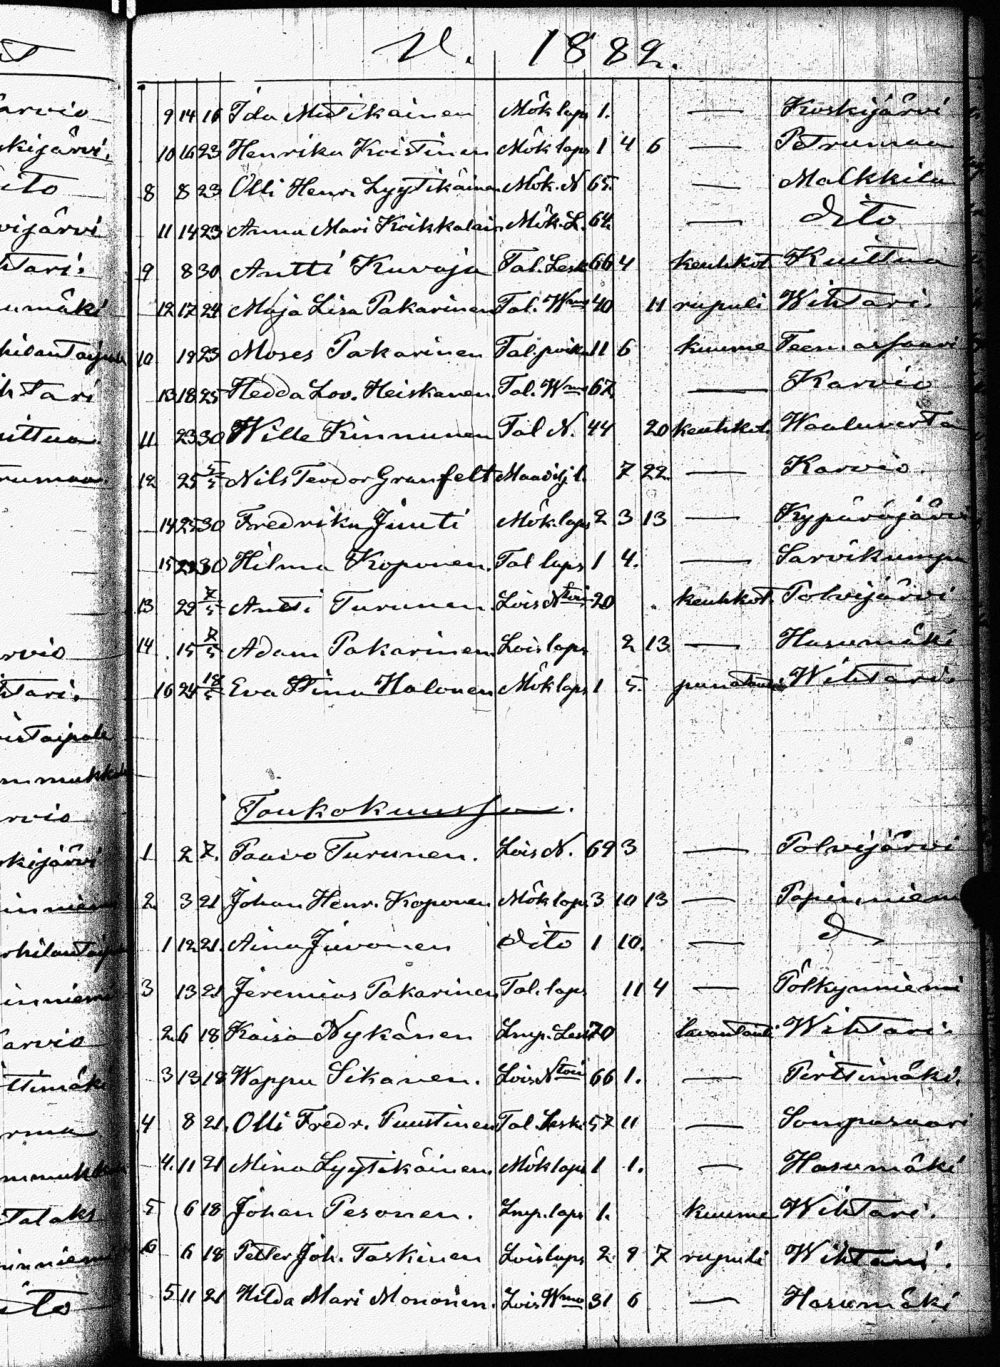 V. 1882.
9 14 16 Ida Mutikainen Mök laps 1. — Koskijärvi
10 16 23 Henrika Koistinen Mök laps 1 4 6 — Petrumaa
8 8 23 Olli Henr. Lyytikäinen Mök. N 65. — Malkkila
11 14 23 Anna Mari Koikkalain Mök. L. 64. — dito
9 8 30 Antti Kuvaja Tal. Lesk 66 4 keuhkot Kuittua
12 17 24 Maja Lisa Pakarinen Tal. Wmo 40 11 rupuli Wihtari.
10 19 23 Moses Pakarinen Tal poika 11 6 kuume
13 18 25 Hedda Lov. Heiskanen. Tal. Wmo 67 — Karvio
11 23 30 Wille Kinnunen Tal N. 44 20 keuhkot. Waaluvirta
12 25 Nils Teodor Granfelt 7 22 — Karvio.
14 25 30 Fredrika Juuti Mök. laps 2 3 13 — Kypäräjärvi
15 23 30 Hilma Koponen. Tal laps 1 4. — Sarvikumpu
13 29 7/5 Antti Turunen. Lois Ntöin 20 keuhkot. Polvijärvi
14 15 7/5 Adam Pakarinen Lois laps 2 13 — Hasumäki
16 24 18/5 Eva Stina Halonen Mök laps 1 5. Wihtari.
Toukokuussa.
1 2 7. Paavo Turunen. Lois N. 69 3 — Polvijärvi
2. 3 21 Johan Henr. Koponen Mök laps 3 10 13 — Papinniemi
1 12 21. Aina Juvonen dito 1 10. — d
3 13 21 Jeremias Pakarinen Tal. laps 11 4 — Pölkynniemi
2 6 18 Kaisa Nykänen Lmp. Lesk 70 lavantauti Wihtari.
3 13 18 Wappu Sikanen. Lois Ntöin 66 1. — Pirttimäki.
4 8 21. Olli Fredr. Puustinen Tal. Leski 57 11 — Sompasaari
4. 11 21 Mina Lyytikäinen Mök laps 1 1. — Hasumäki
5 6 18 Johan Pesonen. Lmp. laps 1. kuume Wihtari.
6 6 18 Petter Joh. Taskinen Lois laps 2 9 7 rupuli Wihtari.
5 11 21 Hilda Mari Mononen. Lois Wmo 31 6 — Hasumäki